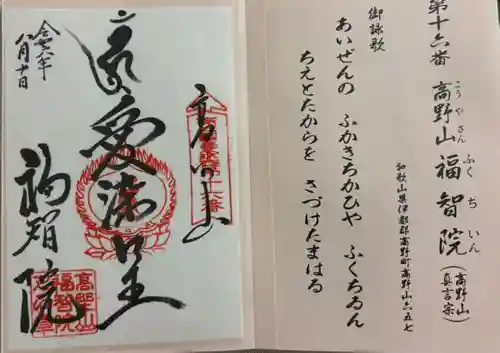 第十六番 高野山 福智院 (高野山真言宗)
こうやさん ふくちいん
和歌山県伊都郡高野町高野山六五七
御詠歌
あいぜんの ふかきちかひや ふくちゐん
ちえとたからを さづけたまはる
高野山
愛染王
福智院
令和六年
八月十日
高野山
福智院